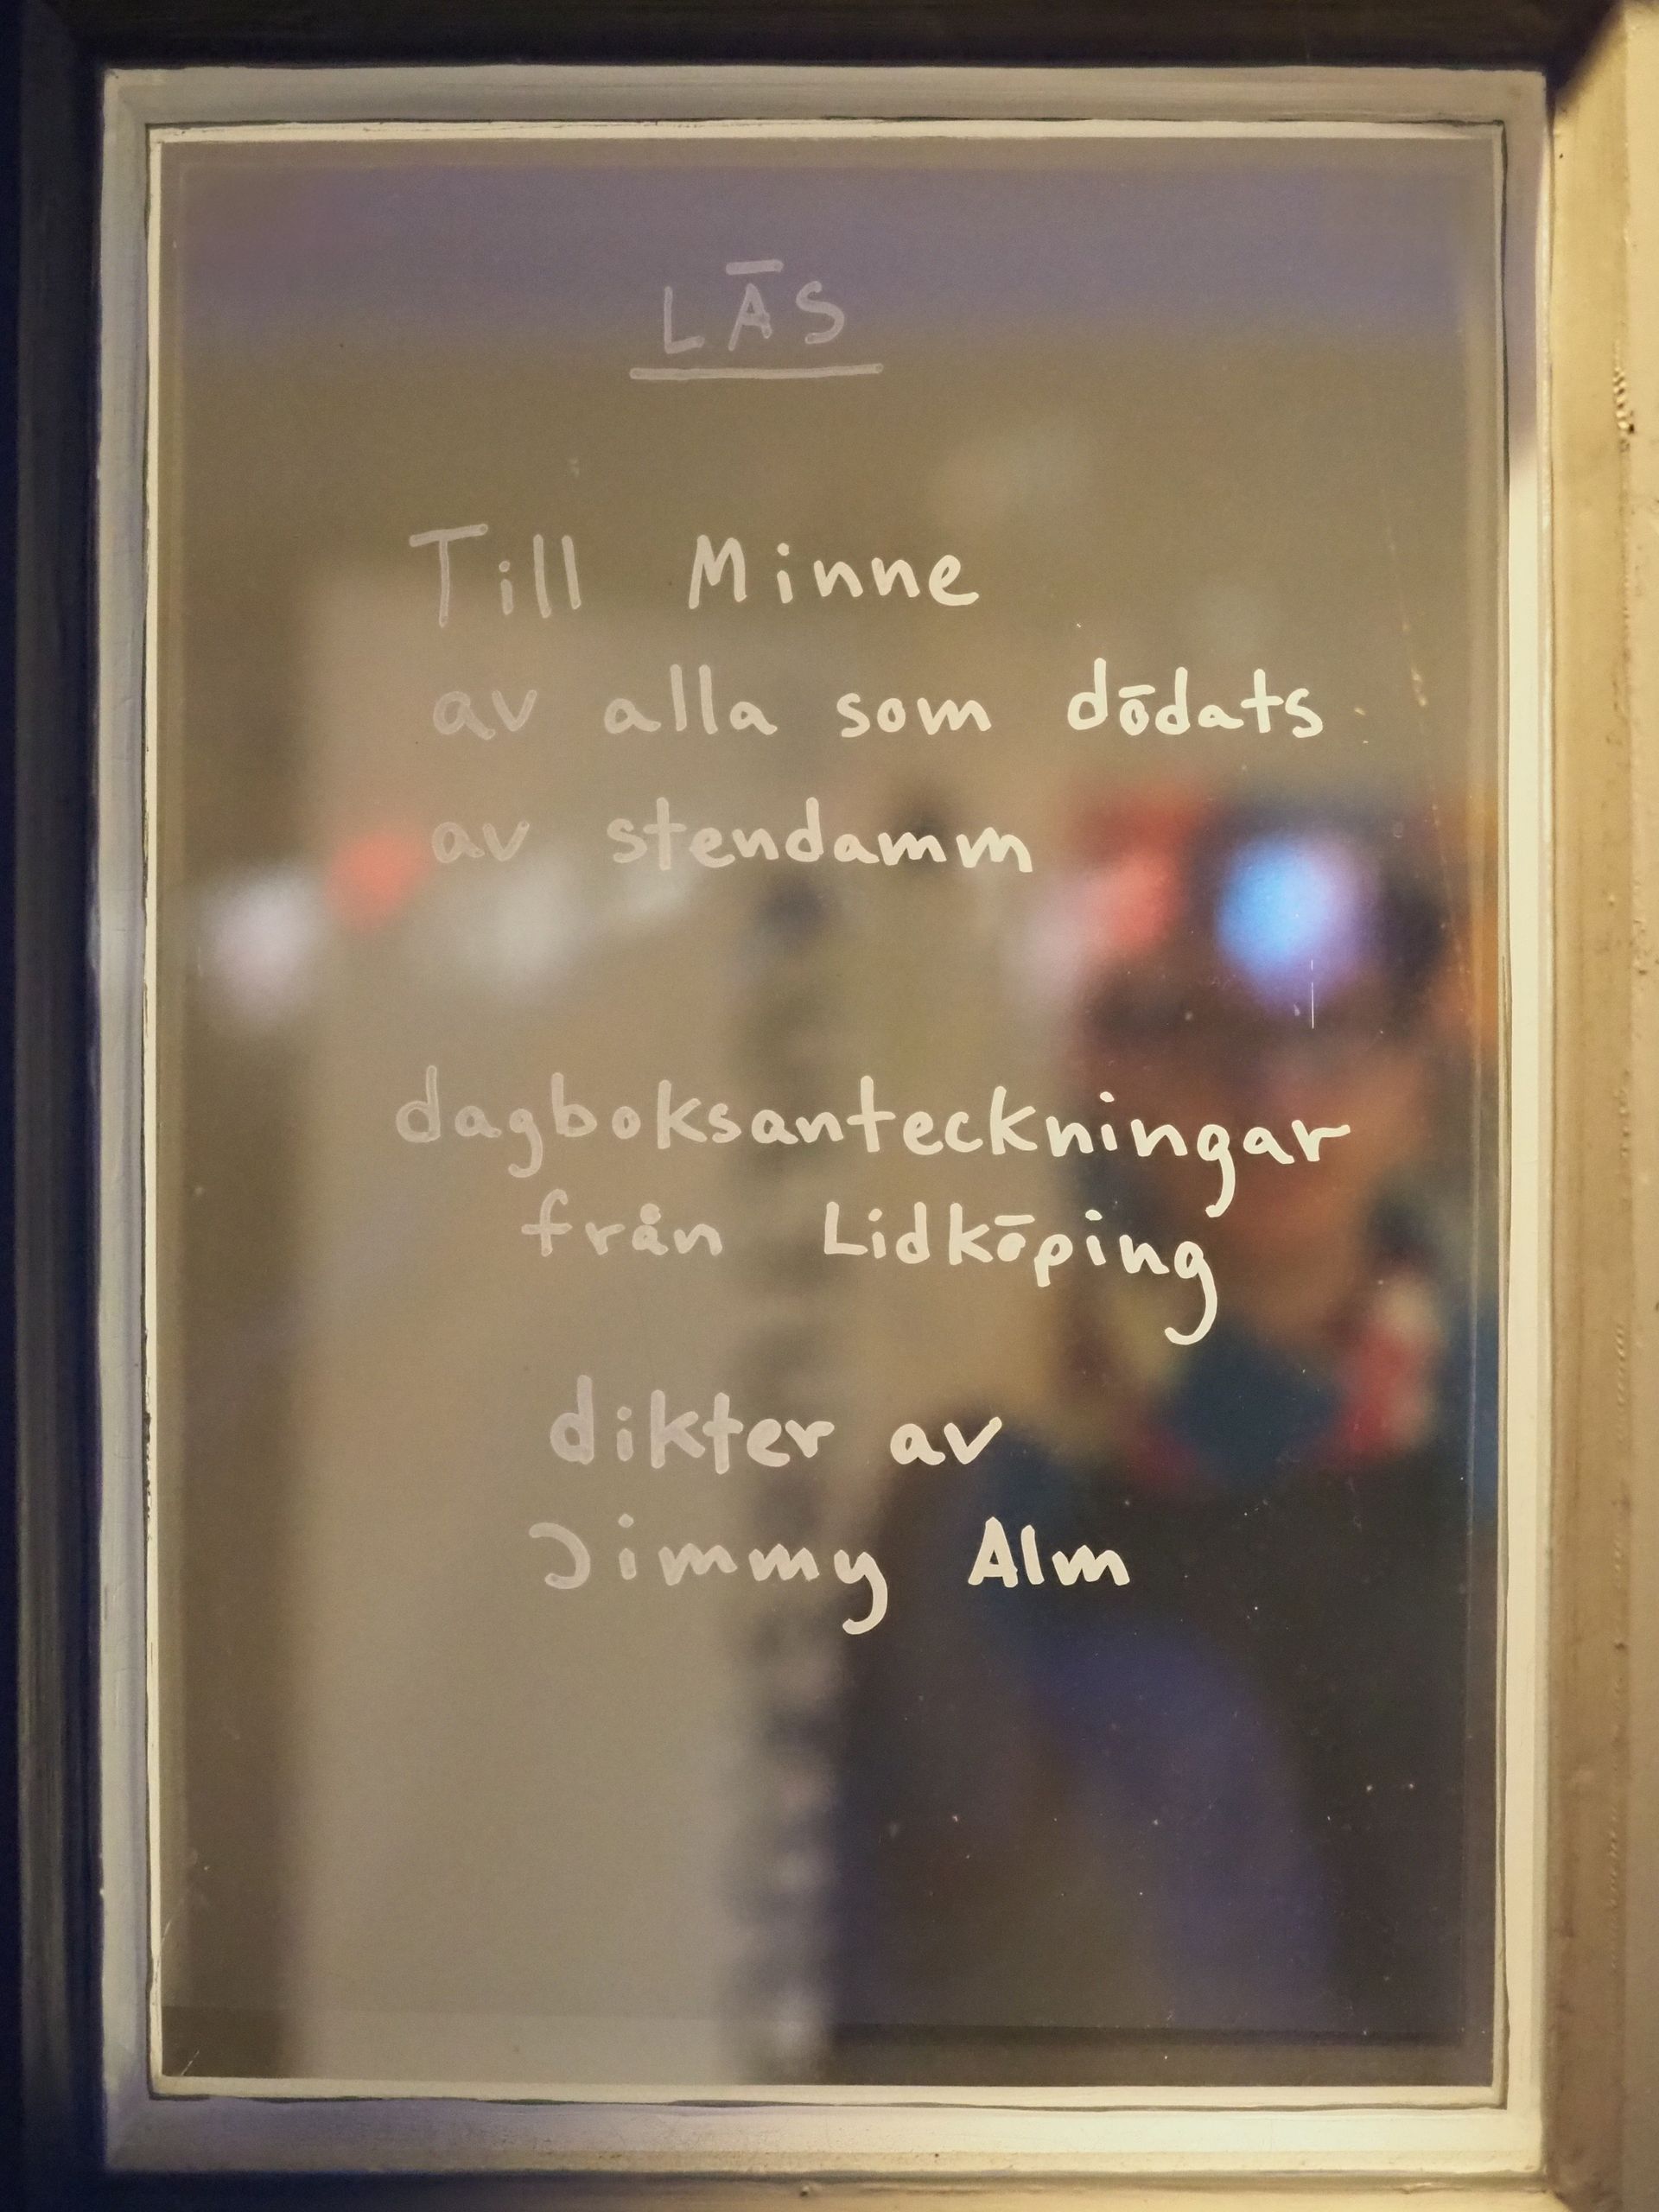 LÄS
Till Minne
av alla som dödats
av stendamm
dagboksanteckningar
från Lidköping
dikter av
Jimmy Alm